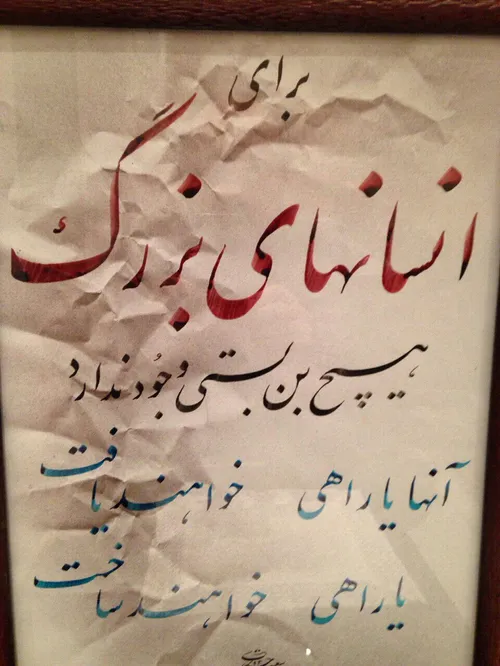 برای
انسانهای بزرگ
هیچ بن بستی وجود ندارد
آنها یا راهی خواهند یافت
یا راهی خواهند ساخت